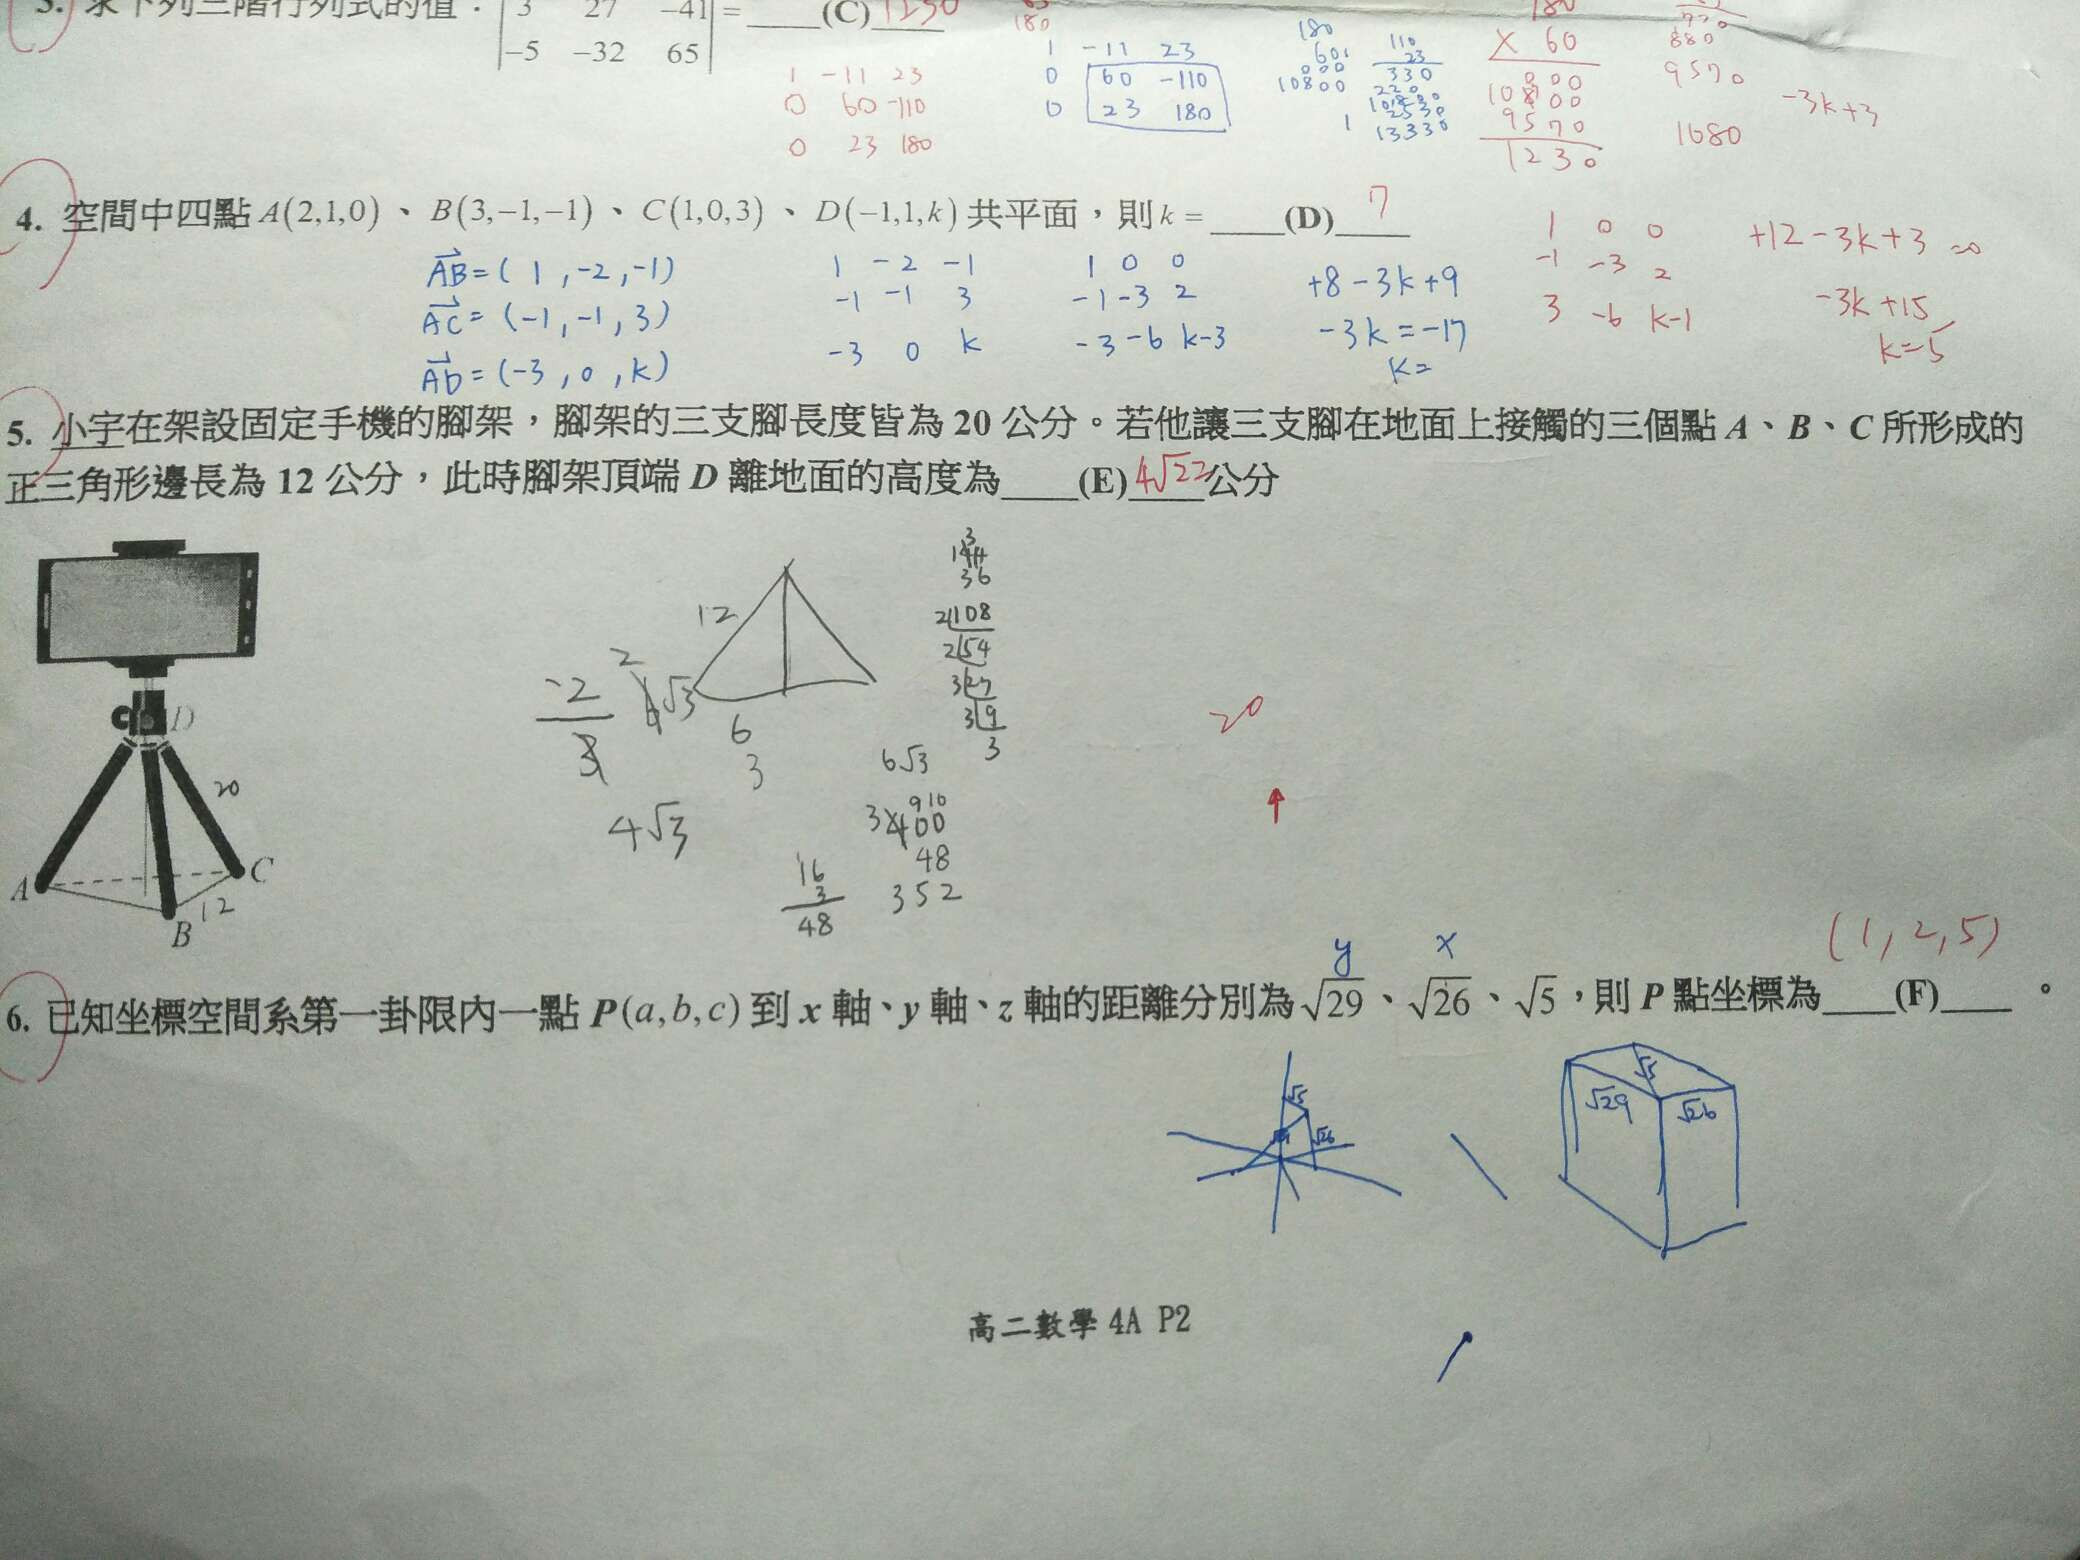 3. 求下列三階行列式的值：| 3 27 −41 | = ____(C)____ 1230
−5 −32 65
1 −11 23
0 60 −110
0 23 180
180
1 −11 23
0 60 −110
0 23 180
180
10800
110
23
330
13330
180
× 60
000
9570
1230
880
9570
1680
−3k+3
4. 空間中四點 A(2,1,0)、B(3,−1,−1)、C(1,0,3)、D(−1,1,k) 共平面，則 k = ____(D)____ 7
AB=(1,-2,-1)
AC=(-1,-1,3)
AD=(-3,0,k)
1 -2 -1
-1 -1 3
-3 0 k
1 0 0
-1 -3 2
-3 -6 k-3
+8-3k+9
-3k=-17
k=
1 0 0
-1 -3 2
3 -6 k-1
+12-3k+3=0
-3k+15
k=5
5. 小宇在架設固定手機的腳架，腳架的三支腳長度皆為 20 公分。若他讓三支腳在地面上接觸的三個點 A、B、C 所形成的
正三角形邊長為 12 公分，此時腳架頂端 D 離地面的高度為____(E) 4√22 公分
D
20
A
C
12
B
12
6
3
2
3
2
6√3
4√3
144
36
2 108
2 54
3 27
3 9
3
6√3
400
48
352
16
3
48
20
6. 已知坐標空間系第一卦限內一點 P(a,b,c) 到 x 軸、y 軸、z 軸的距離分別為 √29、√26、√5，則 P 點坐標為____(F)____。
y
x
(1,2,5)
√5
√26
√5
√29
√26
高二數學 4A P2